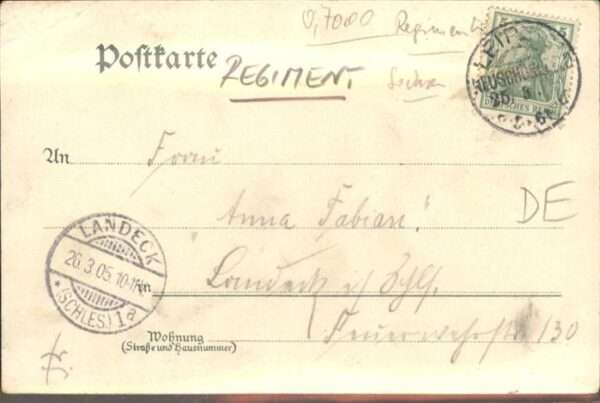 0,7000 Regiment
Postkarte
REGIMENT
Sachsen
5 5
LEIPZIG
NEUSCHÖNEFELD
DEUTSCHES REICH
An Frau
"Anna Fabian."
DE
LANDECK
26.3.05.10-11V.
* (SCHLES) 1a
in Landeck i/Schl.
Feuerwehrstr. 130
Wohnung
(Straße und Hausnummer)
fr.